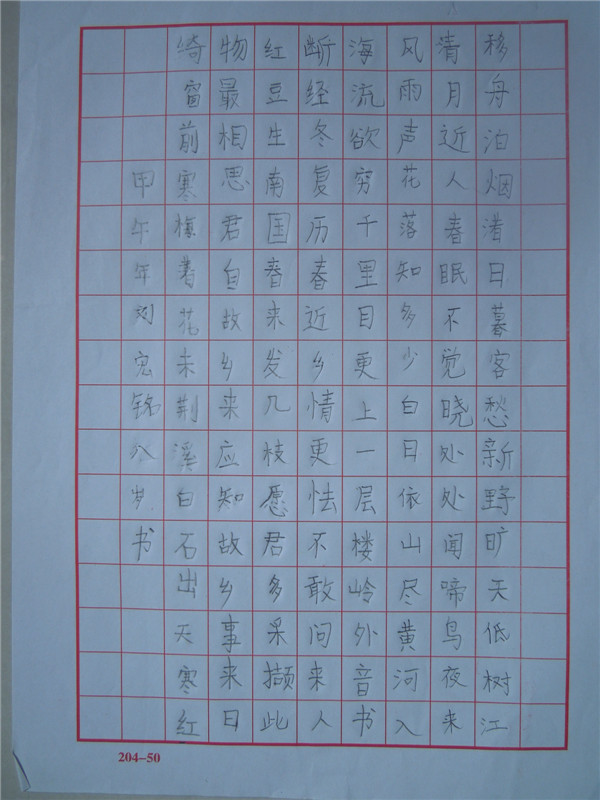 移舟泊烟渚日暮客愁新野旷天低树江
清月近人春眠不觉晓处处闻啼鸟夜来
风雨声花落知多少白日依山尽黄河入
海流欲穷千里目更上一层楼岭外音书
断经冬复历春近乡情更怯不敢问来人
红豆生南国春来发几枝愿君多采撷此
物最相思君自故乡来应知故乡事来日
绮窗前寒梅著花未荆溪白石出天寒红
甲午年刘铭八岁书
204-50